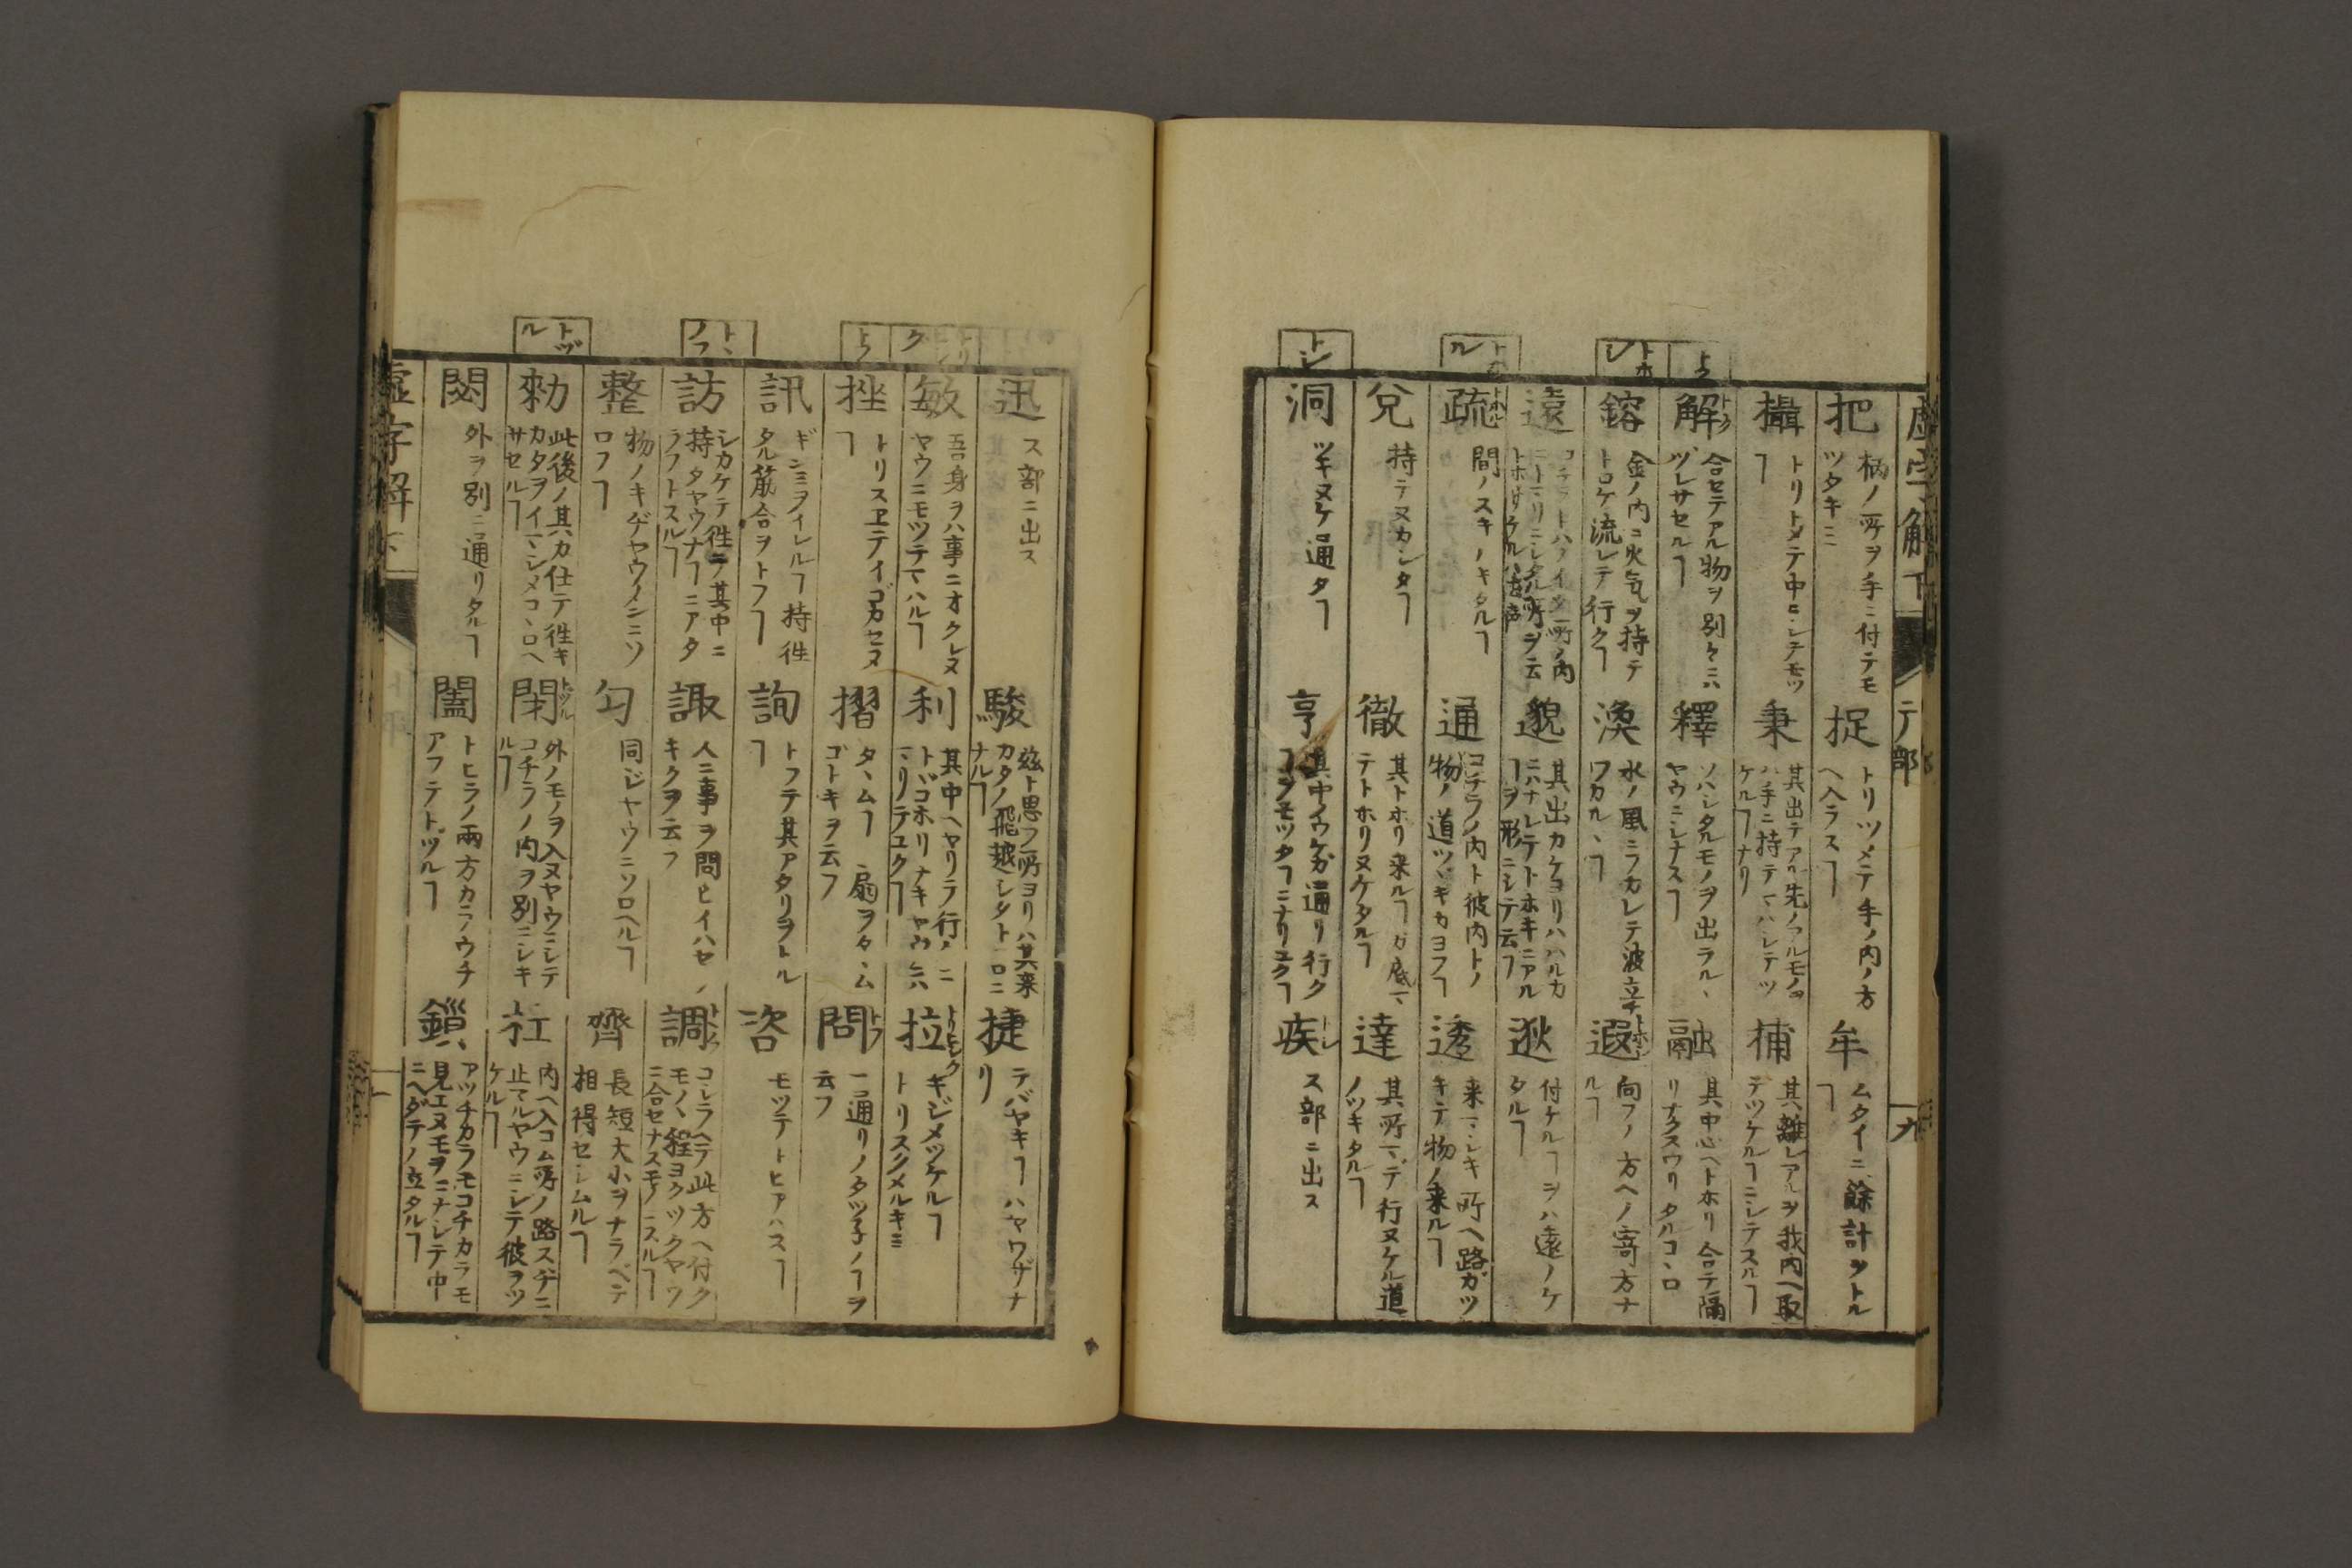 虚字解下
テ部
九
把
柄ノ所ヲ手ニ付テモ
ツタキミ
捉
トリツメテ手ノ内ノ方
ヘ入ラスヿ
牟
ムタイニ餘計ヲトル
ヿ
欇
トリトメテ中ニシテモツ
ヿ
秉
其出テアル先ノアルモノヲ
ハ手ニ持テマハシテツ
ケルヿナリ
捕
其離レアルヲ我内ヘ取
テツケルヿニシテスルヿ
トク
解
合セテアル物ヲ別々ニハ
ヅレサセルヿ
釋
ソハシタルモノヲ出ラルヽ
ヤウニシナスヿ
融
其中心ヘトホリ合テ隔
リナクスウリタルコヽロ
トホシ
鎔
金ノ内コ火気ヲ持テ
トロケ流レテ行クヿ
渙
水ノ風ニフカレテ波立テ
ワカルヽヿ
遐
向フノ方ヘノ寄方ナ
ルヿ
遠
邈
其出カケヨリハハルカ
ニハナレテトホキニアル
ヿヲ形ニシテ云フ
逖
付ケルヿヲハ遠ノケ
タルヿ
トホル
疏
間ノスキノキタルヿ
通
コチラノ内ト彼内トノ
物ノ道ツヾキカヨフヿ
透
来マシキ所ヘ路ガツ
キテ物ノ来ルヿ
兌
持テヌカシタヿ
徹
其トホリ来ルヿガ底マ
テトホリヌケタルヿ
達
其所マデ行ヌケル道
ノツキタルヿ
トシ
洞
ツキヌケ通タヿ
亨
其中イウケガ通リ行ク
ヿヲモツタヿニナリユクヿ
疾
ス部ニ出ス
迅
ス部ニ出ス
駿
玆ト思フ所ヨリハ其来
カタノ飛越シタトロニ
ナルヿ
捷
テバヤキヿハヤワザナ
リ
敏
吾身ヲハ事ニオクレヌ
ヤウニモツテマハルヿ
利
其中ヘヤリラ行ノニ
トヾコホリナキヤウニハ
マリテユクヿ
拉
キジメツケルヿ
トリスクメルキミ
トフ
挫
トリスヱテイゴカセヌ
ヿ
摺
タヽムヿ扇ヲタヽム
ゴトキヲ云フ
問
一通リノタヅ子ノヿヲ
云フ
訊
ギンミヲイレルヿ持徃
タル筋合ヲトフヿ
詢
トフテ其アタリヲトル
ヿ
咨
モツテトヒアハスヿ
トヽノフ
訪
シカケテ徃テ其中ニ
持タヤウナヿニアタ
ラフトスルヿ
諏
人ニ事ヲ問ヒイハセ
キクヲ云フ
調
コシラヘテ此方ヘ付ク
モノヽ程ヨクツクヤウ
ニ合セナスモノニスルヿ
整
物ノキゲヤウノシニソ
ロフヿ
匀
同ジヤウニソロヘルヿ
齊
長短大小ヲナラベテ
相得セシムルヿ
トヅル
勑
此後ノ其カ仕テ徃キ
カタヲイマシメコヽロヘ
サセルヿ
閉
外ノモノヲ入ヌヤウニシテ
コチラノ内ヲ別ニシキ
ルヿ
杜
内ヘ入コム所ノ路スヂニ
止マルヤウニシテ彼ヲツ
ケルヿ
閟
外ヲ別ニ通リタルヿ
闔
トヒラノ両方カラウチ
アフテトヅルヿ
鎖
アツチカラモコチカラモ
見エヌモヲニナシテ中
ニヘダテノ立タルヿ
虚字解下